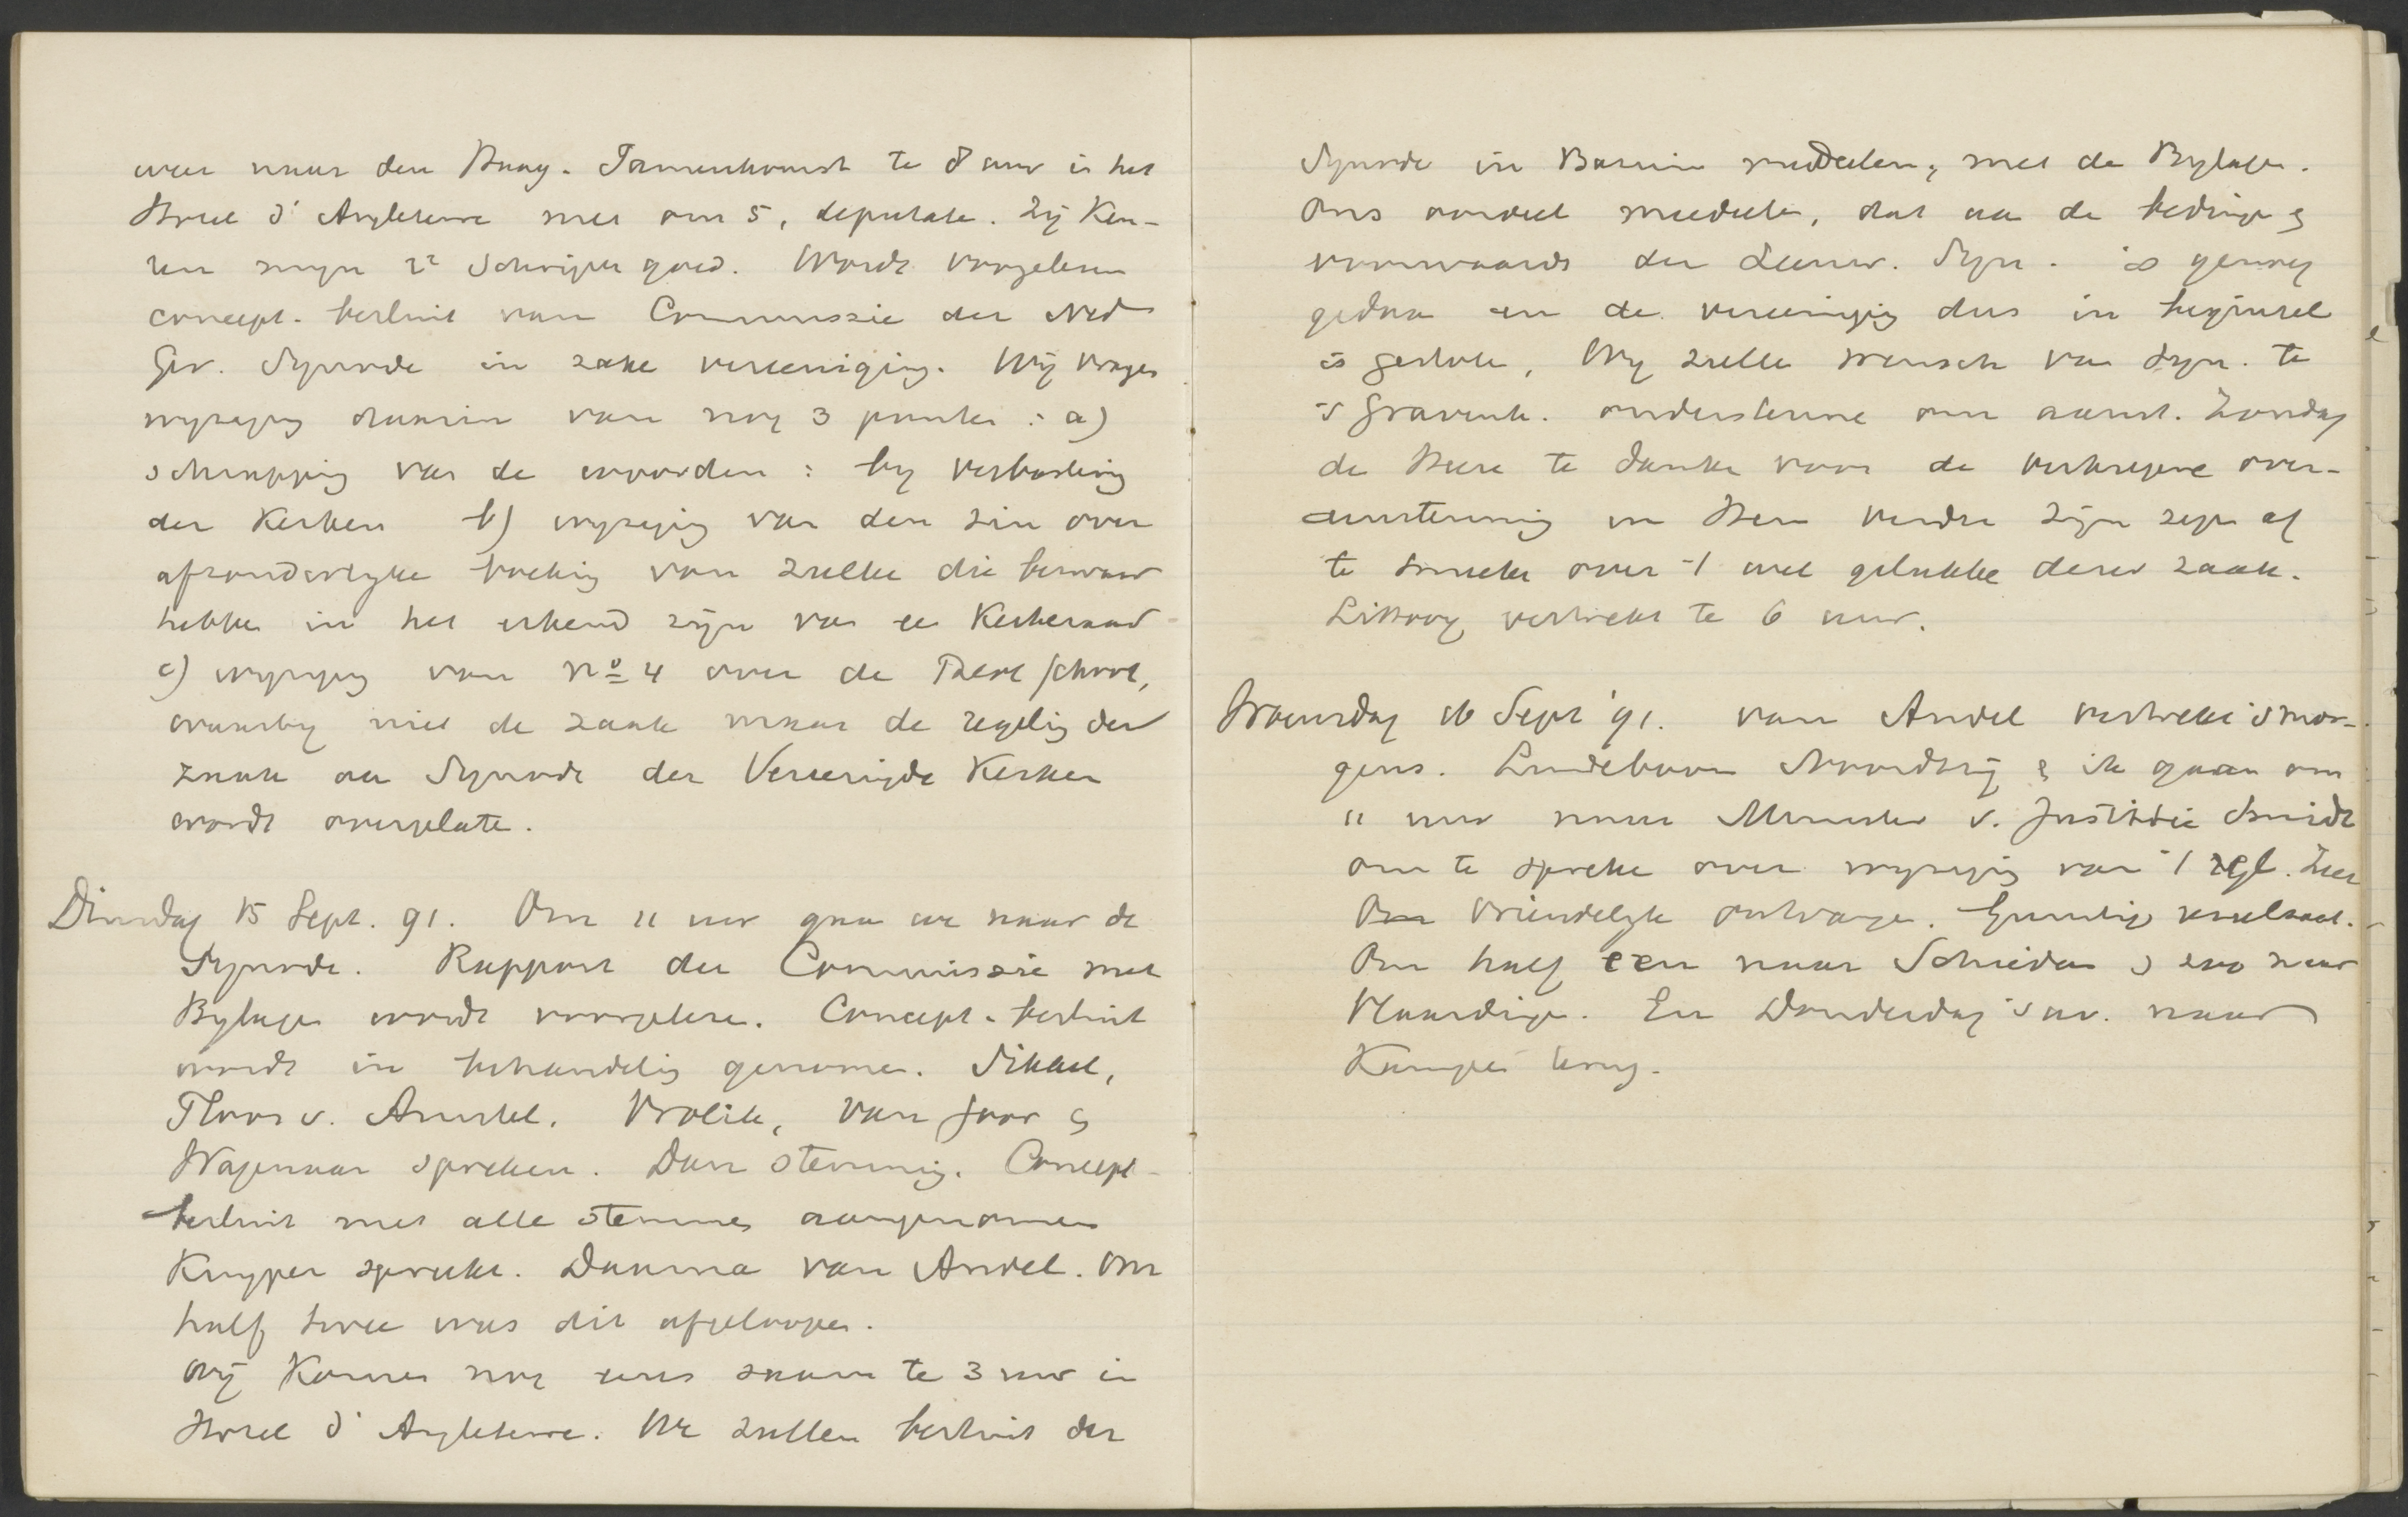 weer naar den Haag. Samenkomst te 8 uur in het
Hotel d'Angleterre met onze 5, deputate. Zij keu-
ren mijn 2e schrijven goed. Wordt voorgelezen
concept-besluit van Commissie der Ned
Ger. Synode in zake vereeniging. Wij vragen
wijziging daarin van nog 3 punten: a)
schrapping van de woorden: bij verbastering
der Kerken b) wijziging van den zin over
afzonderlijke boeking van zulke die bezwaar
hebben in het erkend zijn van de Kerkeraad
c) wijziging van No 4 over de Theol School,
waarbij niet de zaak maar de regeling der
zaak aan Synode der Vereenigde Kerken
wordt overgelaten.
Dinsdag 15 Sept. 91. Om 11 uur gaan we naar de
Synode. Rapport der Commissie met
Bylagen wordt voorgelezen. Concept-besluit
wordt in behandeling genomen. Sikkel,
Ploos v. Amstel. Vrolik, van Goor &
Wagenaar spreken. Dan stemming. Concept-
besluit met alle stemmen aangenomen
Kuyper spreekt. Daarna van Andel. Om
half twee was dit afgeloopen.
Wij komen nog eens zaam te 3 uur in
Hotel d'Angleterre. We zullen besluit der
Synode in Bazuin meedeelen, met de Bylagen.
Ons oordeel meedeelen, dat aan de bedingen &
voorwaarde der Leeuw. Syn. is genoeg
gedaan en de vereeniging dus in beginsel
is gesloten. Wij zullen wensch van Syn. te
's Gravenh. ondersteunen om aanst. Zondag
de Heere te danken voor de verkregene over-
eenstemming en Hem verder zijn zegen af
te smeeken over 't wel gelukken dezer zaak.
Littooy vertrekt te 6 uur.
Woensdag 16 Sept '91. van Andel vertrekt 's mor-
gens. Lindeboom Noordtzij & ik gaan om
11 uur naar Minister v. Justitie Smidt
om te spreken over wijziging van 't regl. Zeer
vriendelijk ontvangen. Gunstig resultaat.
Om half een naar Schiedam & zoo naar
Vlaardingen. En Donderdag 's av. naar
Kampen terug.